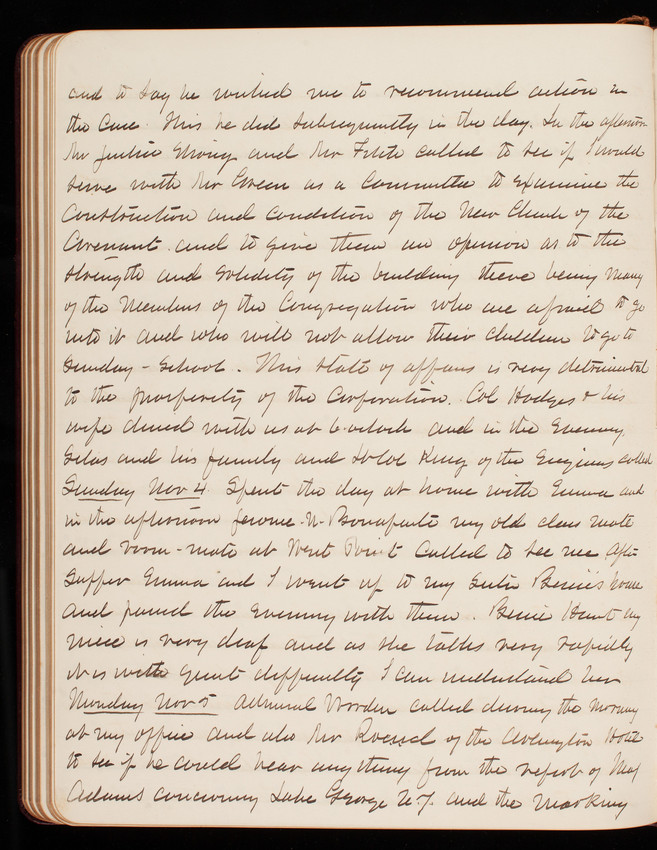 and to say he wished me to recommend action in
the Case. This he did subsequently in the day. In the afternoon
Mr Justice Strong and Mr Fitch called to see if I would
serve with Mr Green as a Committee to examine the
Construction and condition of the New Church of the
Covenant and to give them an opinion as to the
strength and solidity of the building there being many
of the Members of the Congregation who are afraid to go
into it and who will not allow their children to go to
Sunday-School. This state of affairs is very detrimental
to the prosperity of the Corporation. Col Hodges & his
wife dined with us at 6 oclock and in the Evening
Silas and his family and Lt Col King of the Engineers called
Sunday Nov 4 Spent the day at home with Emma and
in the afternoon Jerome-N-Bonaparte my old class mate
and room-mate at West Point Called to see me After
Supper Emma and I went up to my Sister Bessie's house
and passed the Evening with them. Bessie Hunt my
niece is very deaf and as she talks very rapidly
it is with great difficulty I can understand her
Monday Nov 5 Admiral Worden called during the morning
at my office and also Mr Roessel of the Arlington Hotel
to see if he could hear anything from the report of Maj
Adams concerning Lake George N.Y. and the Marking